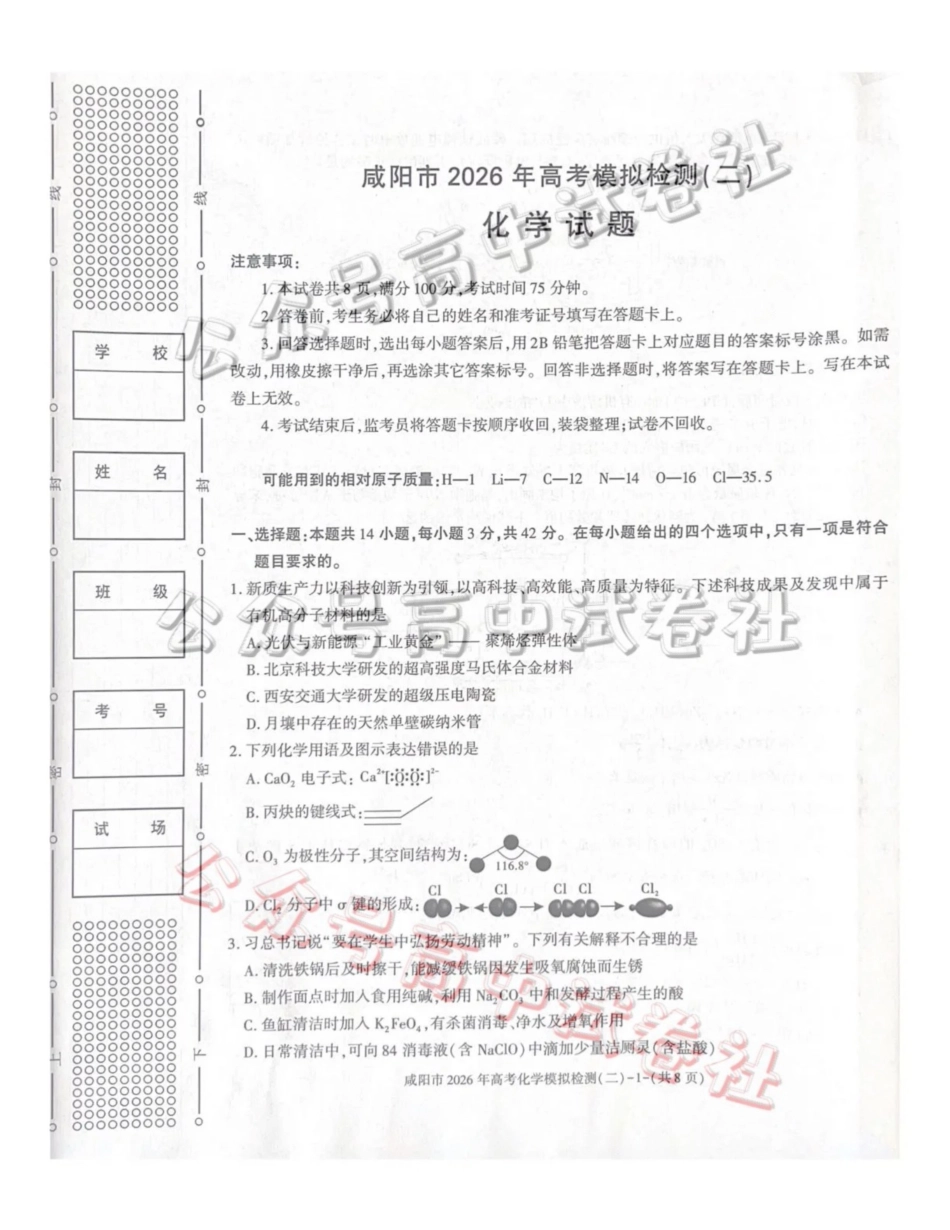 咸阳市2026年高考模拟检测(二)
化学试题
注意事项:
1.本试卷共8页,满分100分,考试时间75分钟。
2.答卷前,考生务必将自己的姓名和准考证号填写在答题卡上。
3.回答选择题时,选出每小题答案后,用2B铅笔把答题卡上对应题目的答案标号涂黑。如需
改动,用橡皮擦干净后,再选涂其它答案标号。回答非选择题时,将答案写在答题卡上。写在本试
卷上无效。
4.考试结束后,监考员将答题卡按顺序收回,装袋整理;试卷不回收。
可能用到的相对原子质量:H—1 Li—7 C—12 N—14 O—16 Cl—35.5
一、选择题:本题共14小题,每小题3分,共42分。在每小题给出的四个选项中,只有一项是符合
题目要求的。
1.新质生产力以科技创新为引领,以高科技、高效能、高质量为特征。下述科技成果及发现中属于
有机高分子材料的是
A.光伏与新能源“工业黄金”——聚烯烃弹性体
B.北京科技大学研发的超高强度马氏体合金材料
C.西安交通大学研发的超级压电陶瓷
D.月壤中存在的天然单壁碳纳米管
2.下列化学用语及图示表达错误的是
A.CaO₂电子式:Ca²⁺[:Ö̤:Ö̤:]²⁻
B.丙炔的键线式:
C.O₃为极性分子,其空间结构为: 116.8°
Cl Cl Cl Cl Cl₂
D.Cl₂分子中σ键的形成:
3.习总书记说“要在学生中弘扬劳动精神”。下列有关解释不合理的是
A.清洗铁锅后及时擦干,能减缓铁锅因发生吸氧腐蚀而生锈
B.制作面点时加入食用纯碱,利用Na₂CO₃中和发酵过程产生的酸
C.鱼缸清洁时加入K₂FeO₄,有杀菌消毒、净水及增氧作用
D.日常清洁中,可向84消毒液(含NaClO)中滴加少量洁厕灵(含盐酸)
咸阳市2026年高考化学模拟检测(二)-1-(共8页)
学 校
姓 名
班 级
考 号
试 场
线
封
密
上
线
封
密
下
公众号高中试卷社
公众号高中试卷社
公众号高中试卷社